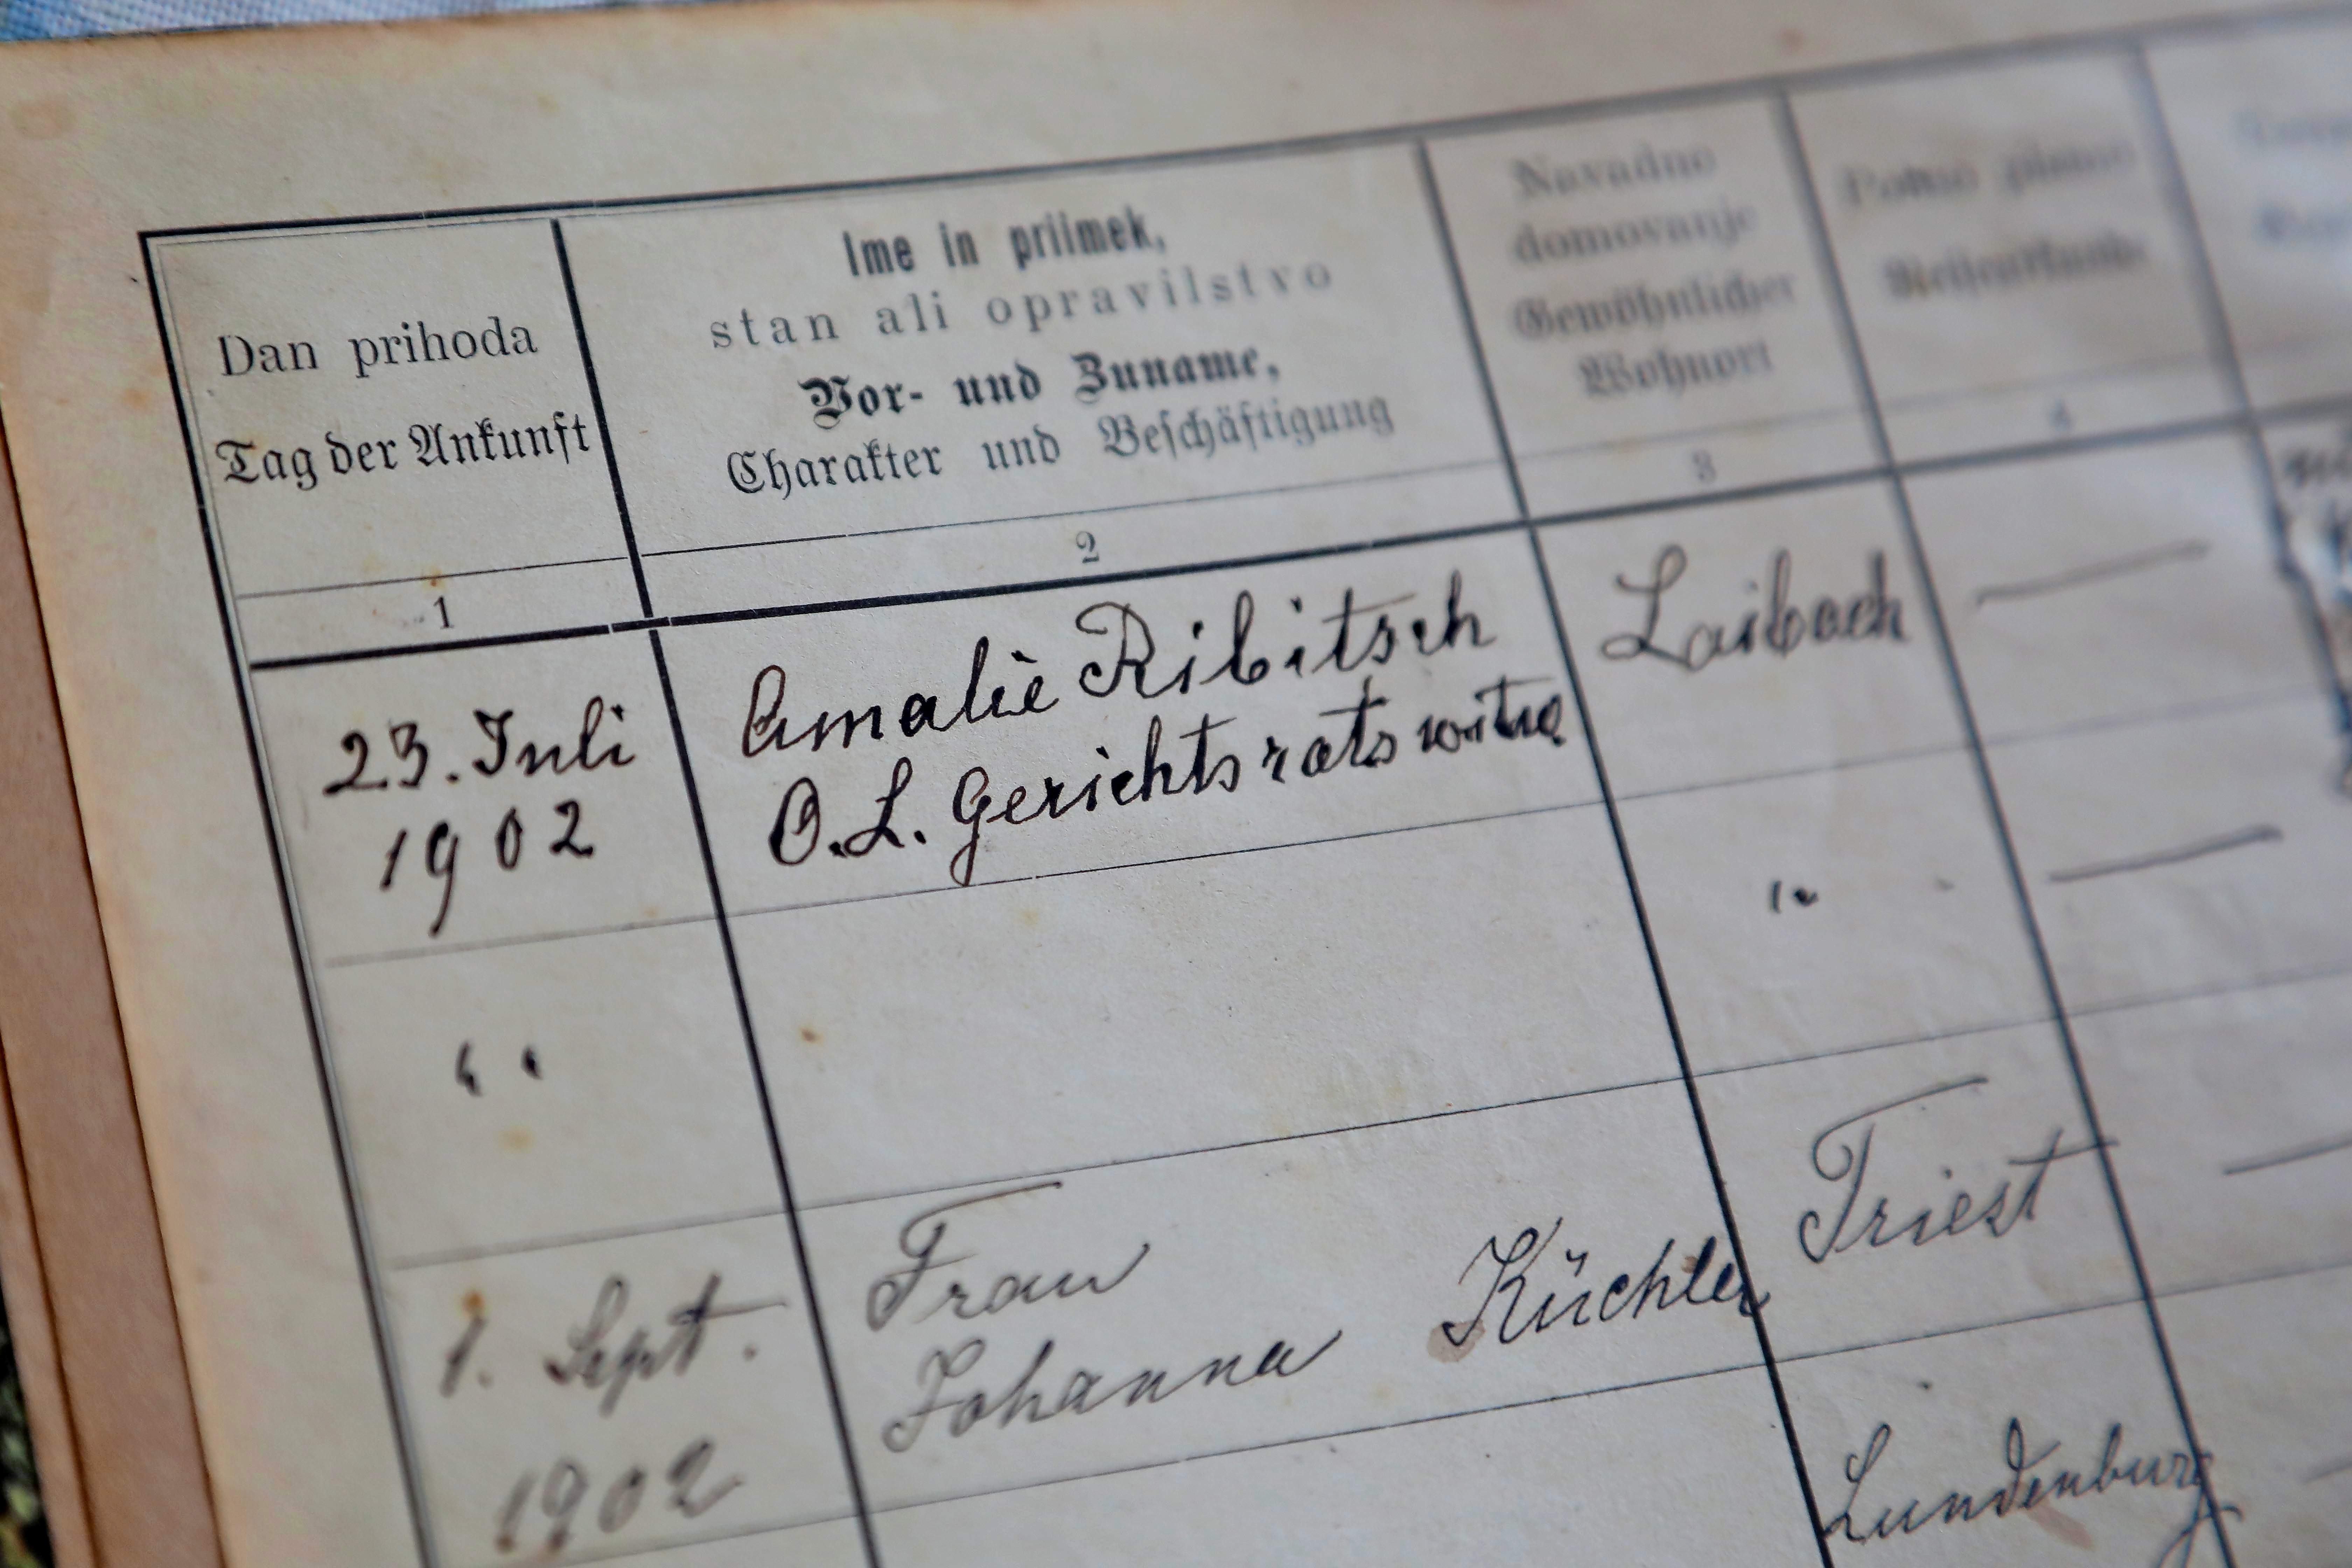 Dan prihoda
Tag der Ankunft
1
Ime in priimek,
stan ali opravilstvo
Vor- und Zuname,
Charakter und Beschäftigung
2
Navadno
domovanje
Gewöhnlicher
Wohnort
3
4
23. Juli
1902
Amalie Ribitsch
O.L. Gerichtsratswitwe
Laibach
—
"
"
—
1. Sept.
1902
Frau
Johanna Küchler
Triest
—
Lundenburg